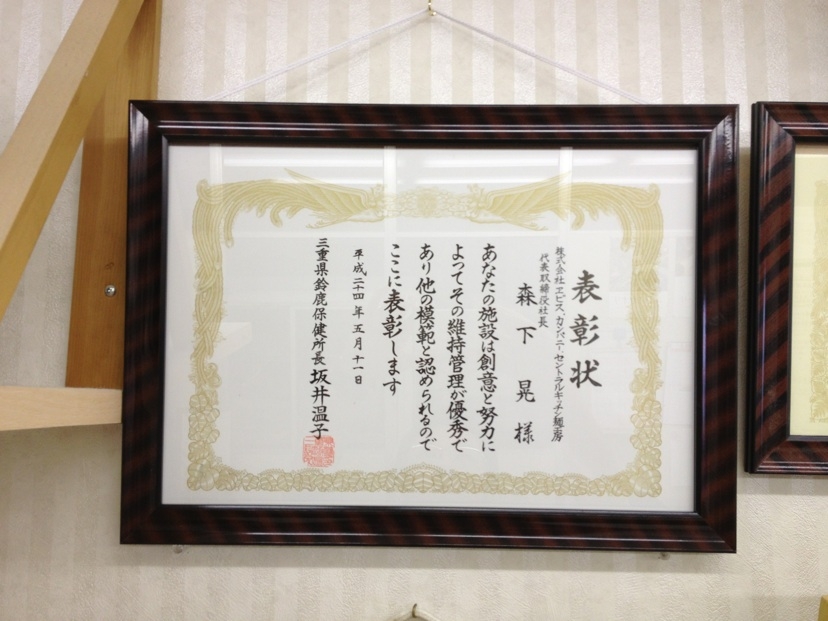 表彰状
株式会社エビス、カンパニーセントラルキッチン麺工房
代表取締役社長
森下晃様
あなたの施設は創意と努力に
よってその維持管理が優秀で
あり他の模範と認められるので
ここに表彰します
平成二十四年五月十一日
三重県鈴鹿保健所長 坂井温子